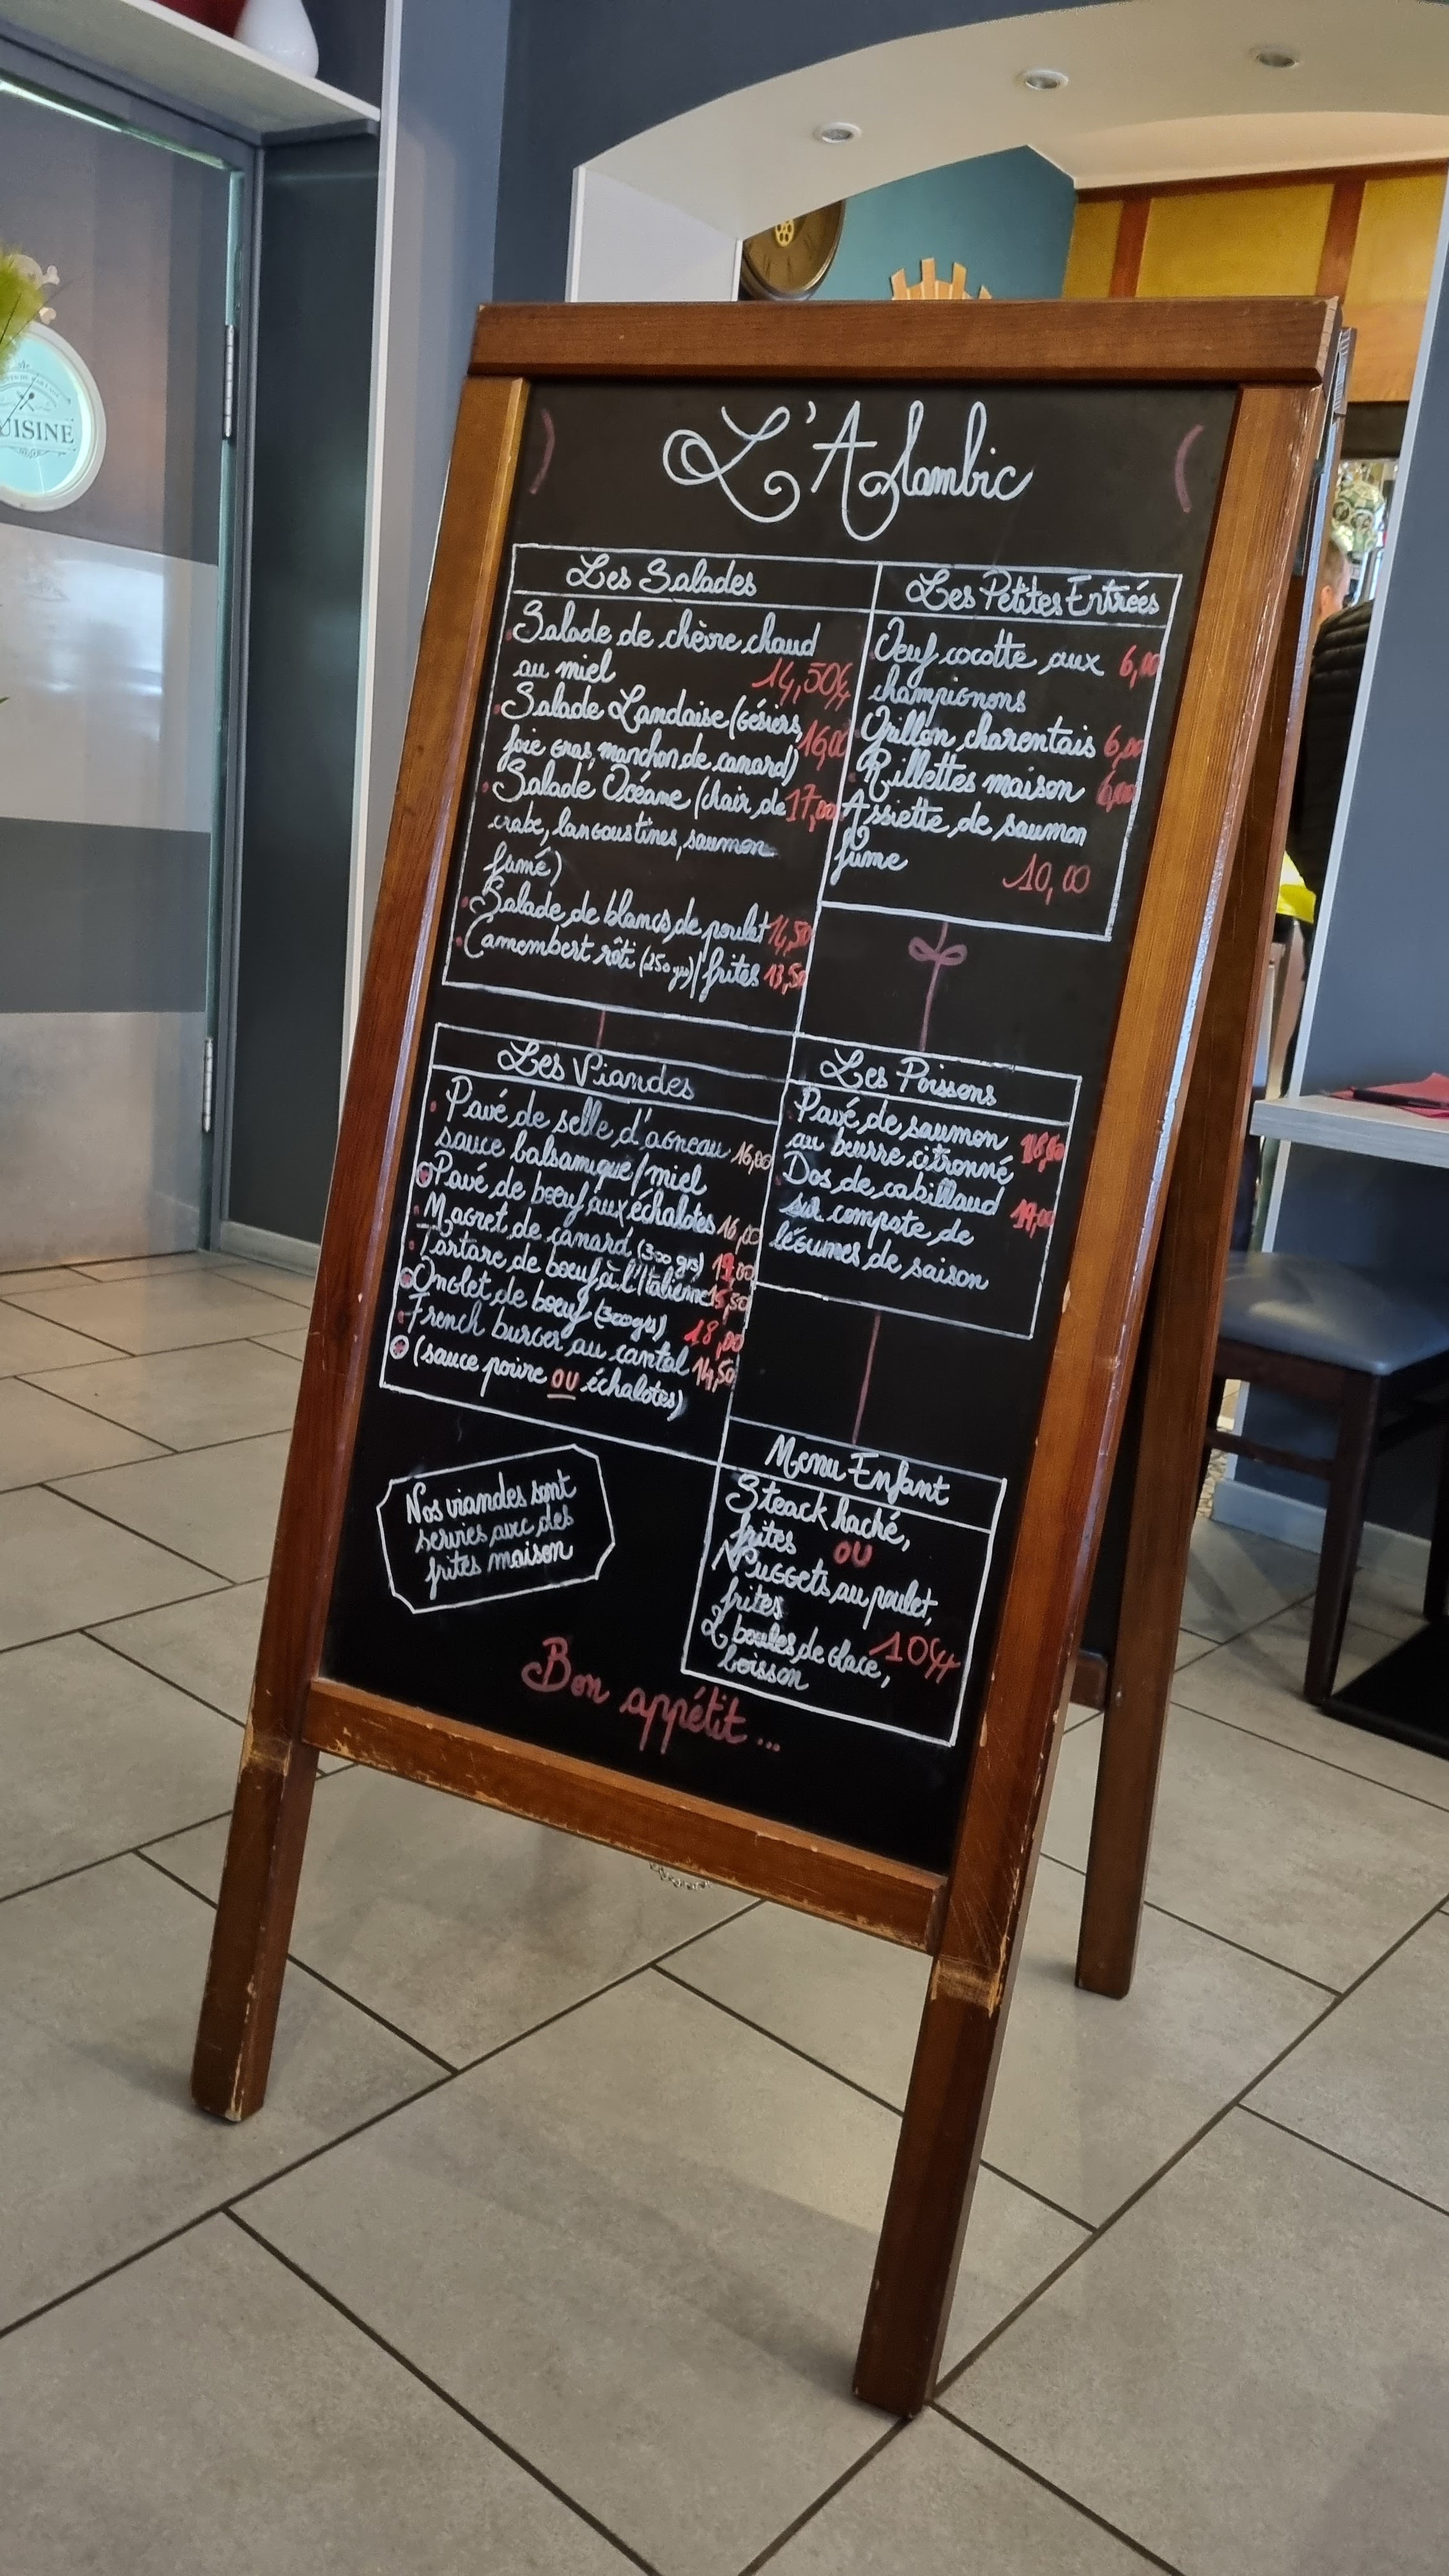 UISINE
L'Alambic
Les Salades
Salade de chèvre chaud
au miel 14,50€
Salade Landaise (Gésiers, 16,00
foie gras, manchon de canard)
Salade Océane (chair de 17,00
crabe, langoustines, saumon
fumé)
Salade de blancs de poulet 14,50
Camembert rôti (250 grs) / frites 13,50
Les Petites Entrées
Oeuf cocotte aux 6,00
champignons
Grillon charentais 6,00
Rillettes maison 6,00
Assiette de saumon
fumé 10,00
Les Viandes
Pavé de selle d'agneau 16,00
sauce balsamique / miel
Pavé de bœuf aux échalotes 16,00
Magret de canard (300 grs)
Tartare de bœuf à l'Italienne 15,50
Onglet de bœuf (300grs) 18,00
French burger au cantal 14,50
(sauce poivre OU échalotes)
Les Poissons
Pavé de saumon
au beurre citronné
Dos de cabillaud
sur compote de
légumes de saison
Nos viandes sont
servies avec des
frites maison
Menu Enfant
Steack haché,
frites OU
Nuggets au poulet,
frites
2 boules de glace, 10€
boisson
Bon appétit...